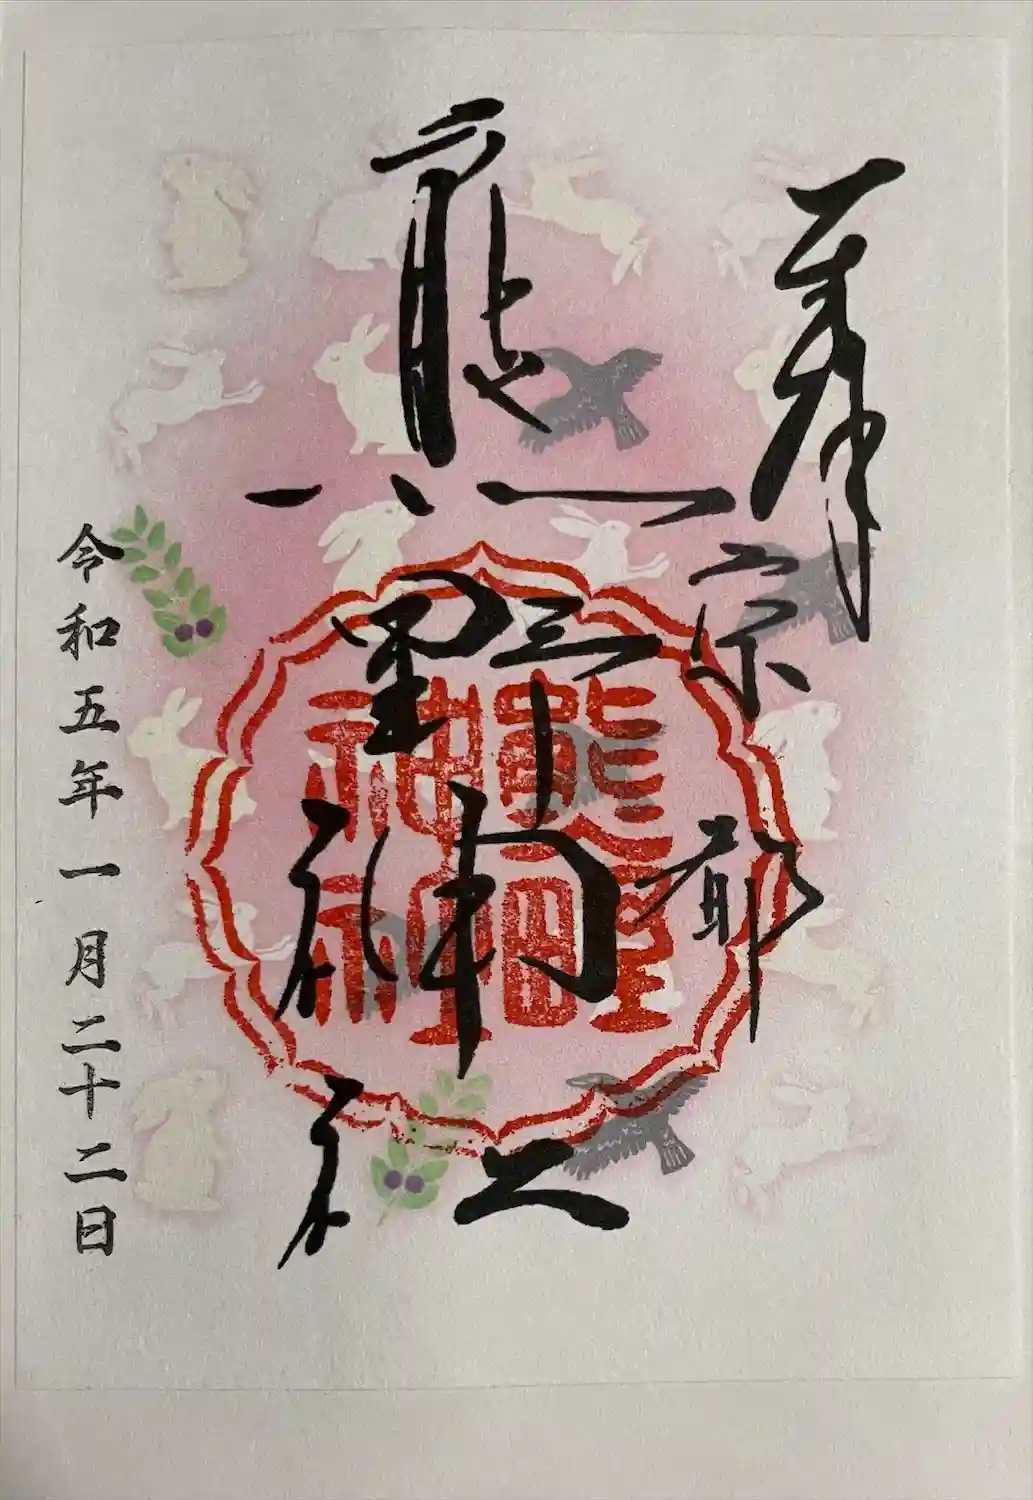 奉拝
京都
熊野神社
令和五年一月二十二日
熊野
神社